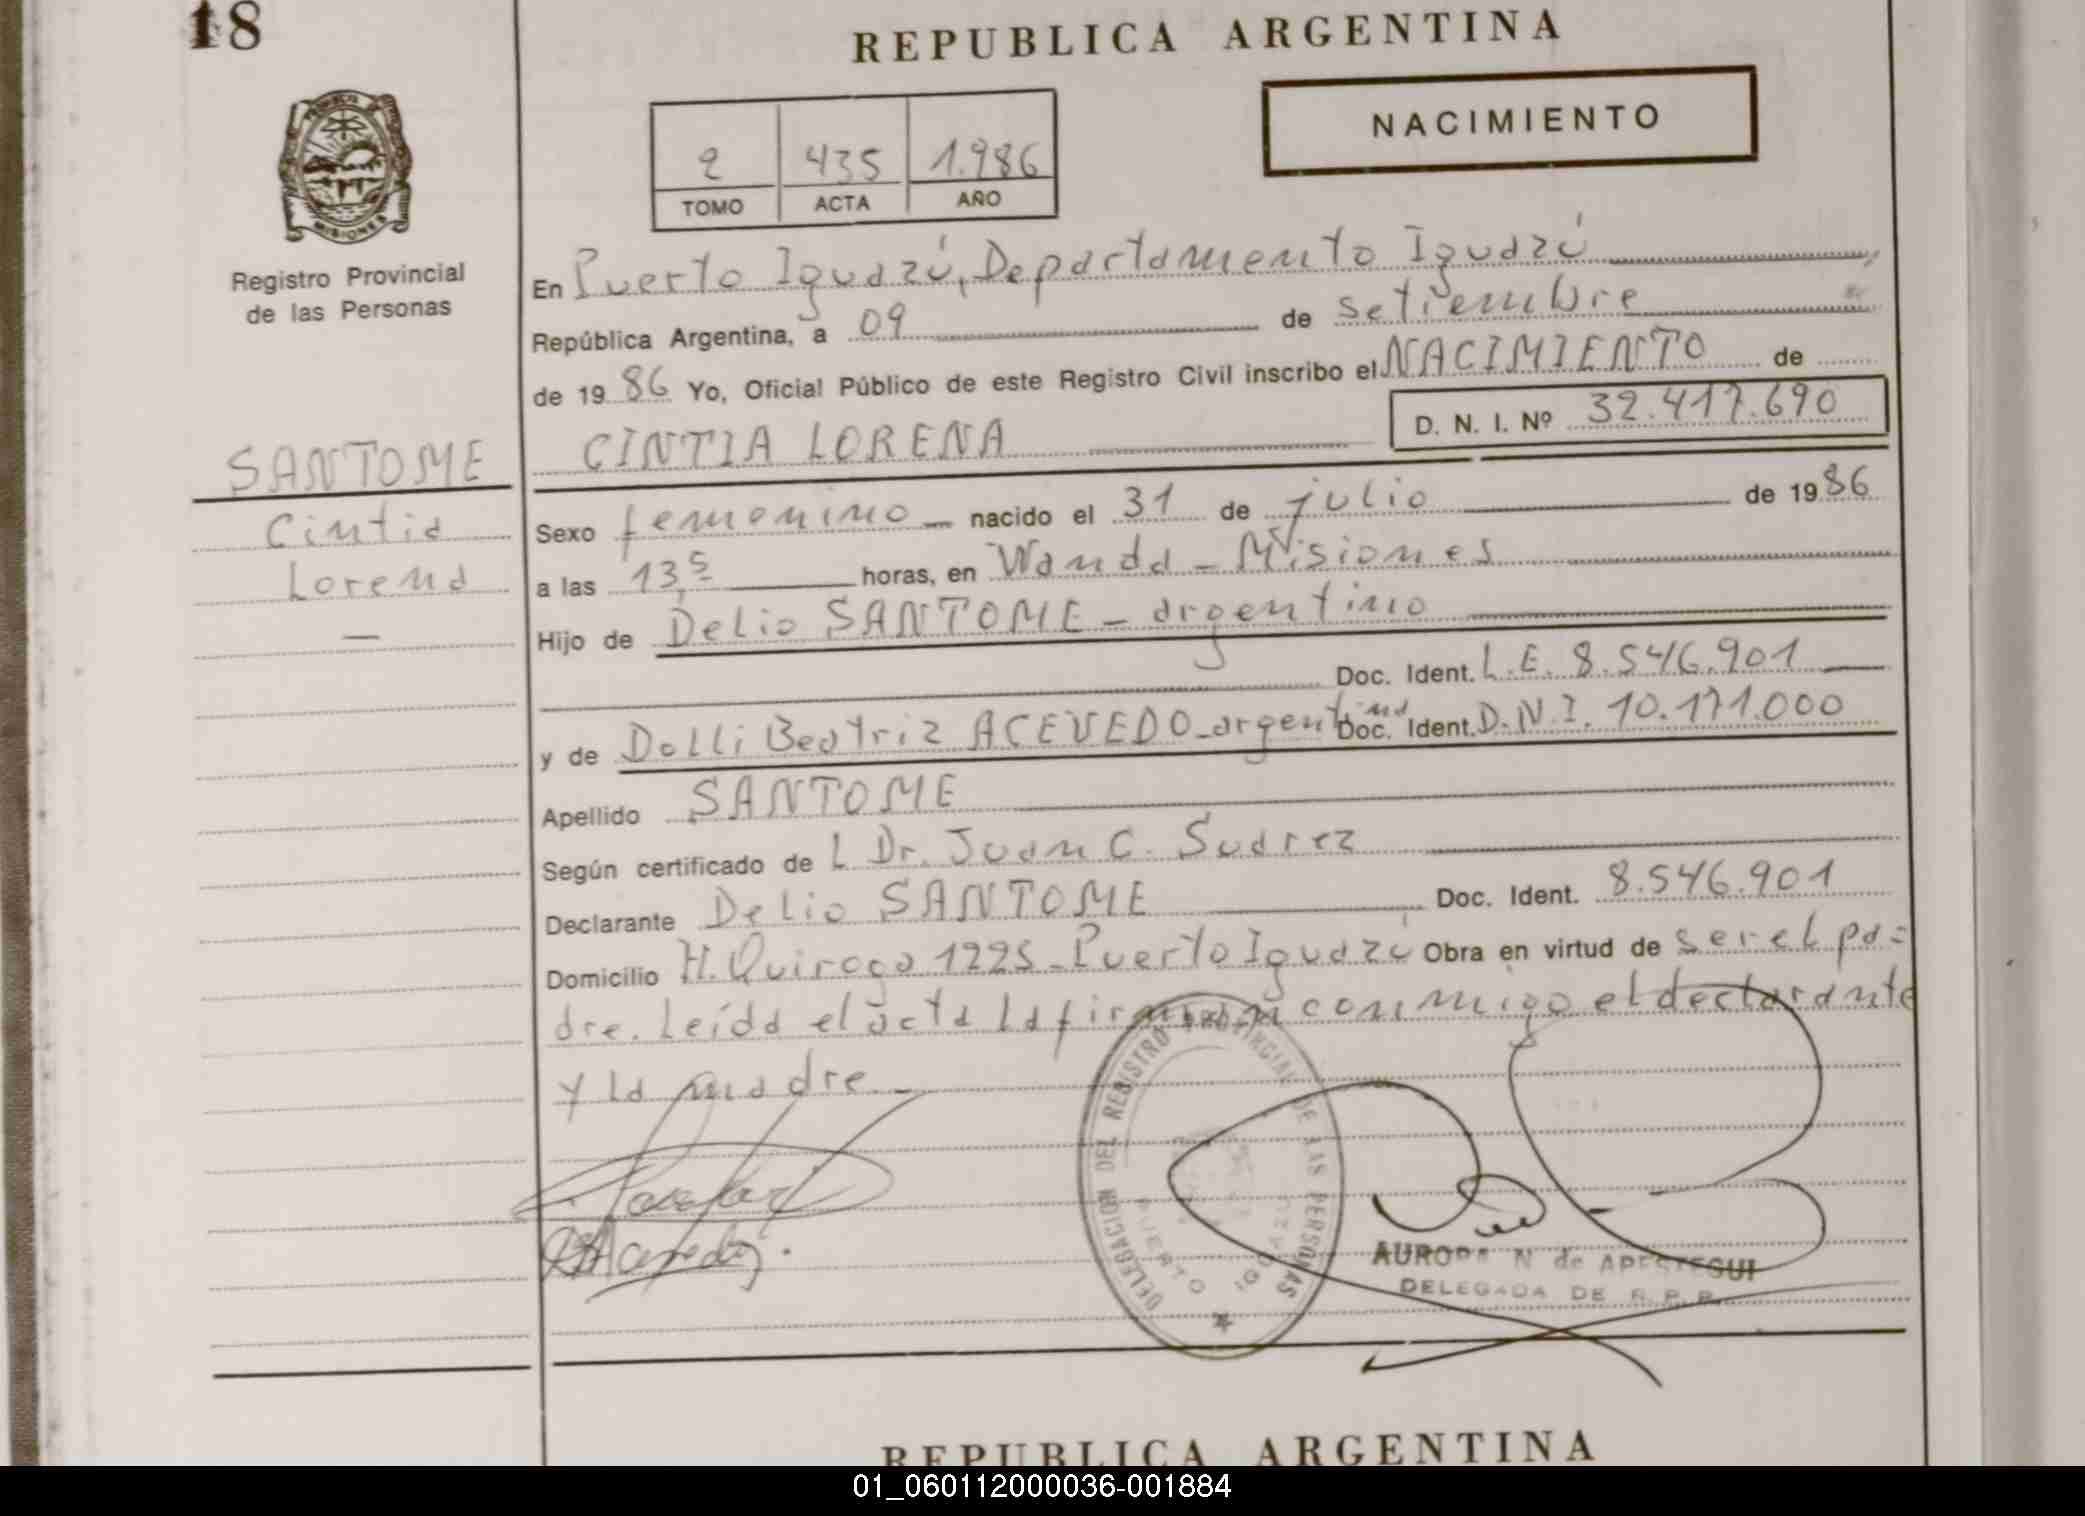 18
REPUBLICA ARGENTINA
NACIMIENTO
2 435 1.986
TOMO ACTA AÑO
PROVINCIA DE
MISIONES
Registro Provincial
de las Personas
En Puerto Iguazú, Departamento Iguazú
República Argentina, a 09 de setiembre
de 1986 Yo, Oficial Público de este Registro Civil inscribo el NACIMIENTO de
D. N. I. Nº 32.417.690
CINTIA LORENA
SANTOME
Cintia
Lorena
—
Sexo femenino nacido el 31 de julio de 1986
a las 13,5 horas, en Wanda - Misiones
Hijo de Delio SANTOME - argentino
Doc. Ident. L.E. 8.546.901
y de Dolli Beatriz ACEVEDO - argentina Doc. Ident. D.N.I. 10.171.000
Apellido SANTOME
Según certificado de L Dr. Juan C. Suarez
Declarante Delio SANTOME Doc. Ident. 8.546.901
Domicilio H. Quiroga 1225 - Puerto Iguazú Obra en virtud de ser el pa=
dre. Leída el acta la firman conmigo el declarante
y la madre -
DELEGACION DEL REGISTRO PROVINCIAL DE LAS PERSONAS
PUERTO IGUAZU
AURORA N de APESTEGUI
DELEGADA DE R. P. P.
REPUBLICA ARGENTINA
01_060112000036-001884